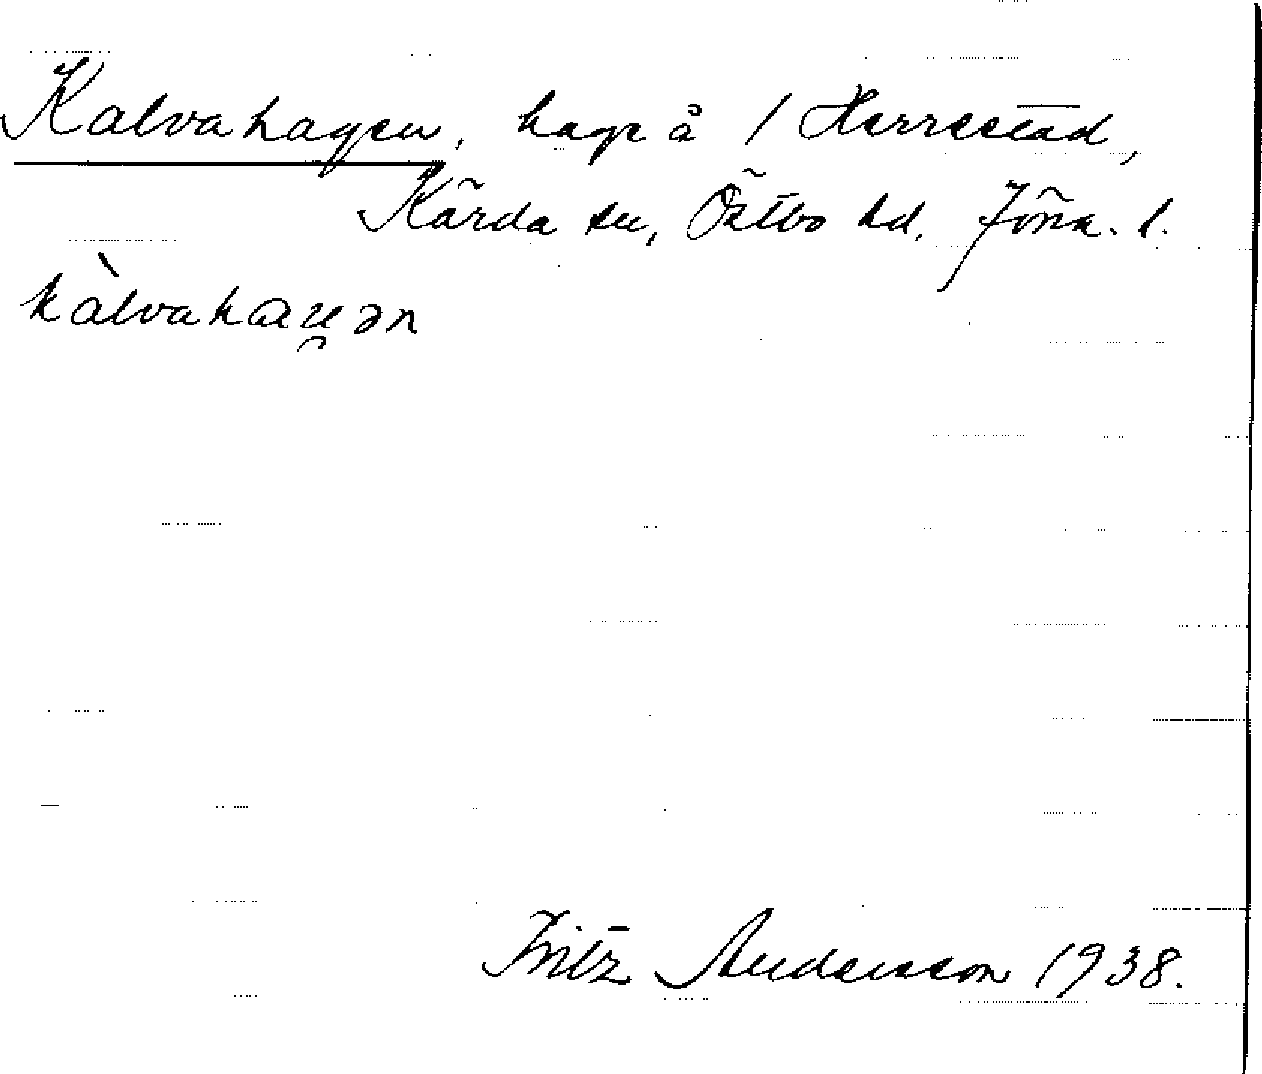 Kalvahagen, hage å 1 Herrestad,
Kärda sn, Östbo hd, Jönk. l.
kàlvahaɡən
Fritz Andersson 1938.